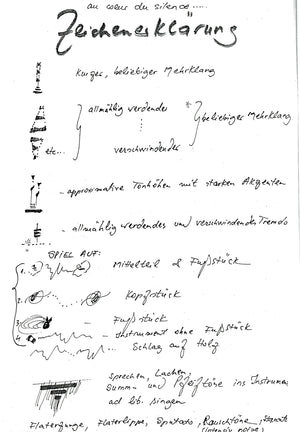 au cœur du silence.....
Zeichenerklärung
kurzer, beliebiger Mehrklang
allmählig werdender
* beliebiger Mehrklang
etc... verschwindender
- approximative Tonhöhen mit starken Akzenten
- allmählig werdendes und verschwindendes Tremolo
SPIEL AUF:
1. Mittelteil & Fußstück
2. Kopfstück
3. Fußstück
4. - Instrument ohne Fußstück
Schlag auf Holz
Sprechen, Lachen,
Summ- und ins Instrument
ad lib. singen
Flatterzunge, Flatterlippe, Rauschtöne,